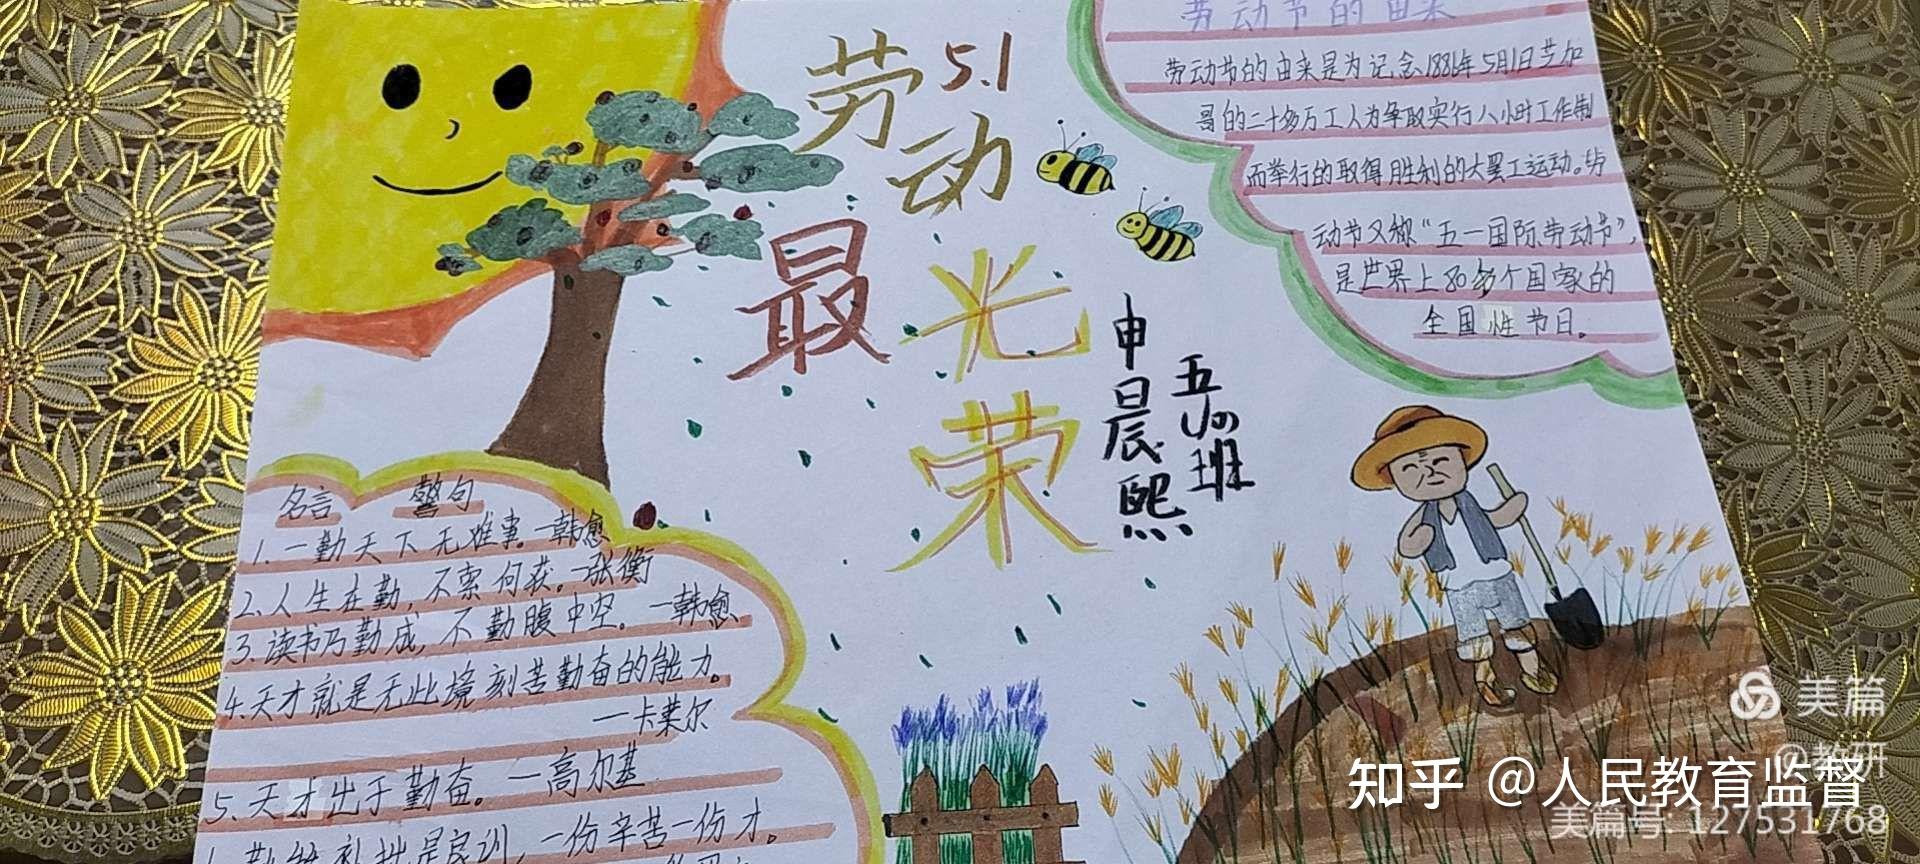 劳动 5.1
最光荣
五(四)班
申晨熙
劳动节的由来
劳动节的由来是为记念1886年5月1日芝加
哥的二十多万工人为争取实行八小时工作制
而举行的取得胜利的大罢工运动。劳
动节又称“五一国际劳动节”，
是世界上80多个国家的
全国性节日。
名言 警句
1. 一勤天下无难事。—韩愈
2. 人生在勤，不索何获。—张衡
3. 读书乃勤成，不勤腹中空。—韩愈
4. 天才就是无此境刻苦勤奋的能力。
—卡莱尔
5. 天才出于勤奋。—高尔基
勤能补拙是良训，一份辛苦一份才。
美篇
@教研
知乎 @人民教育监督
美篇号: 127531768